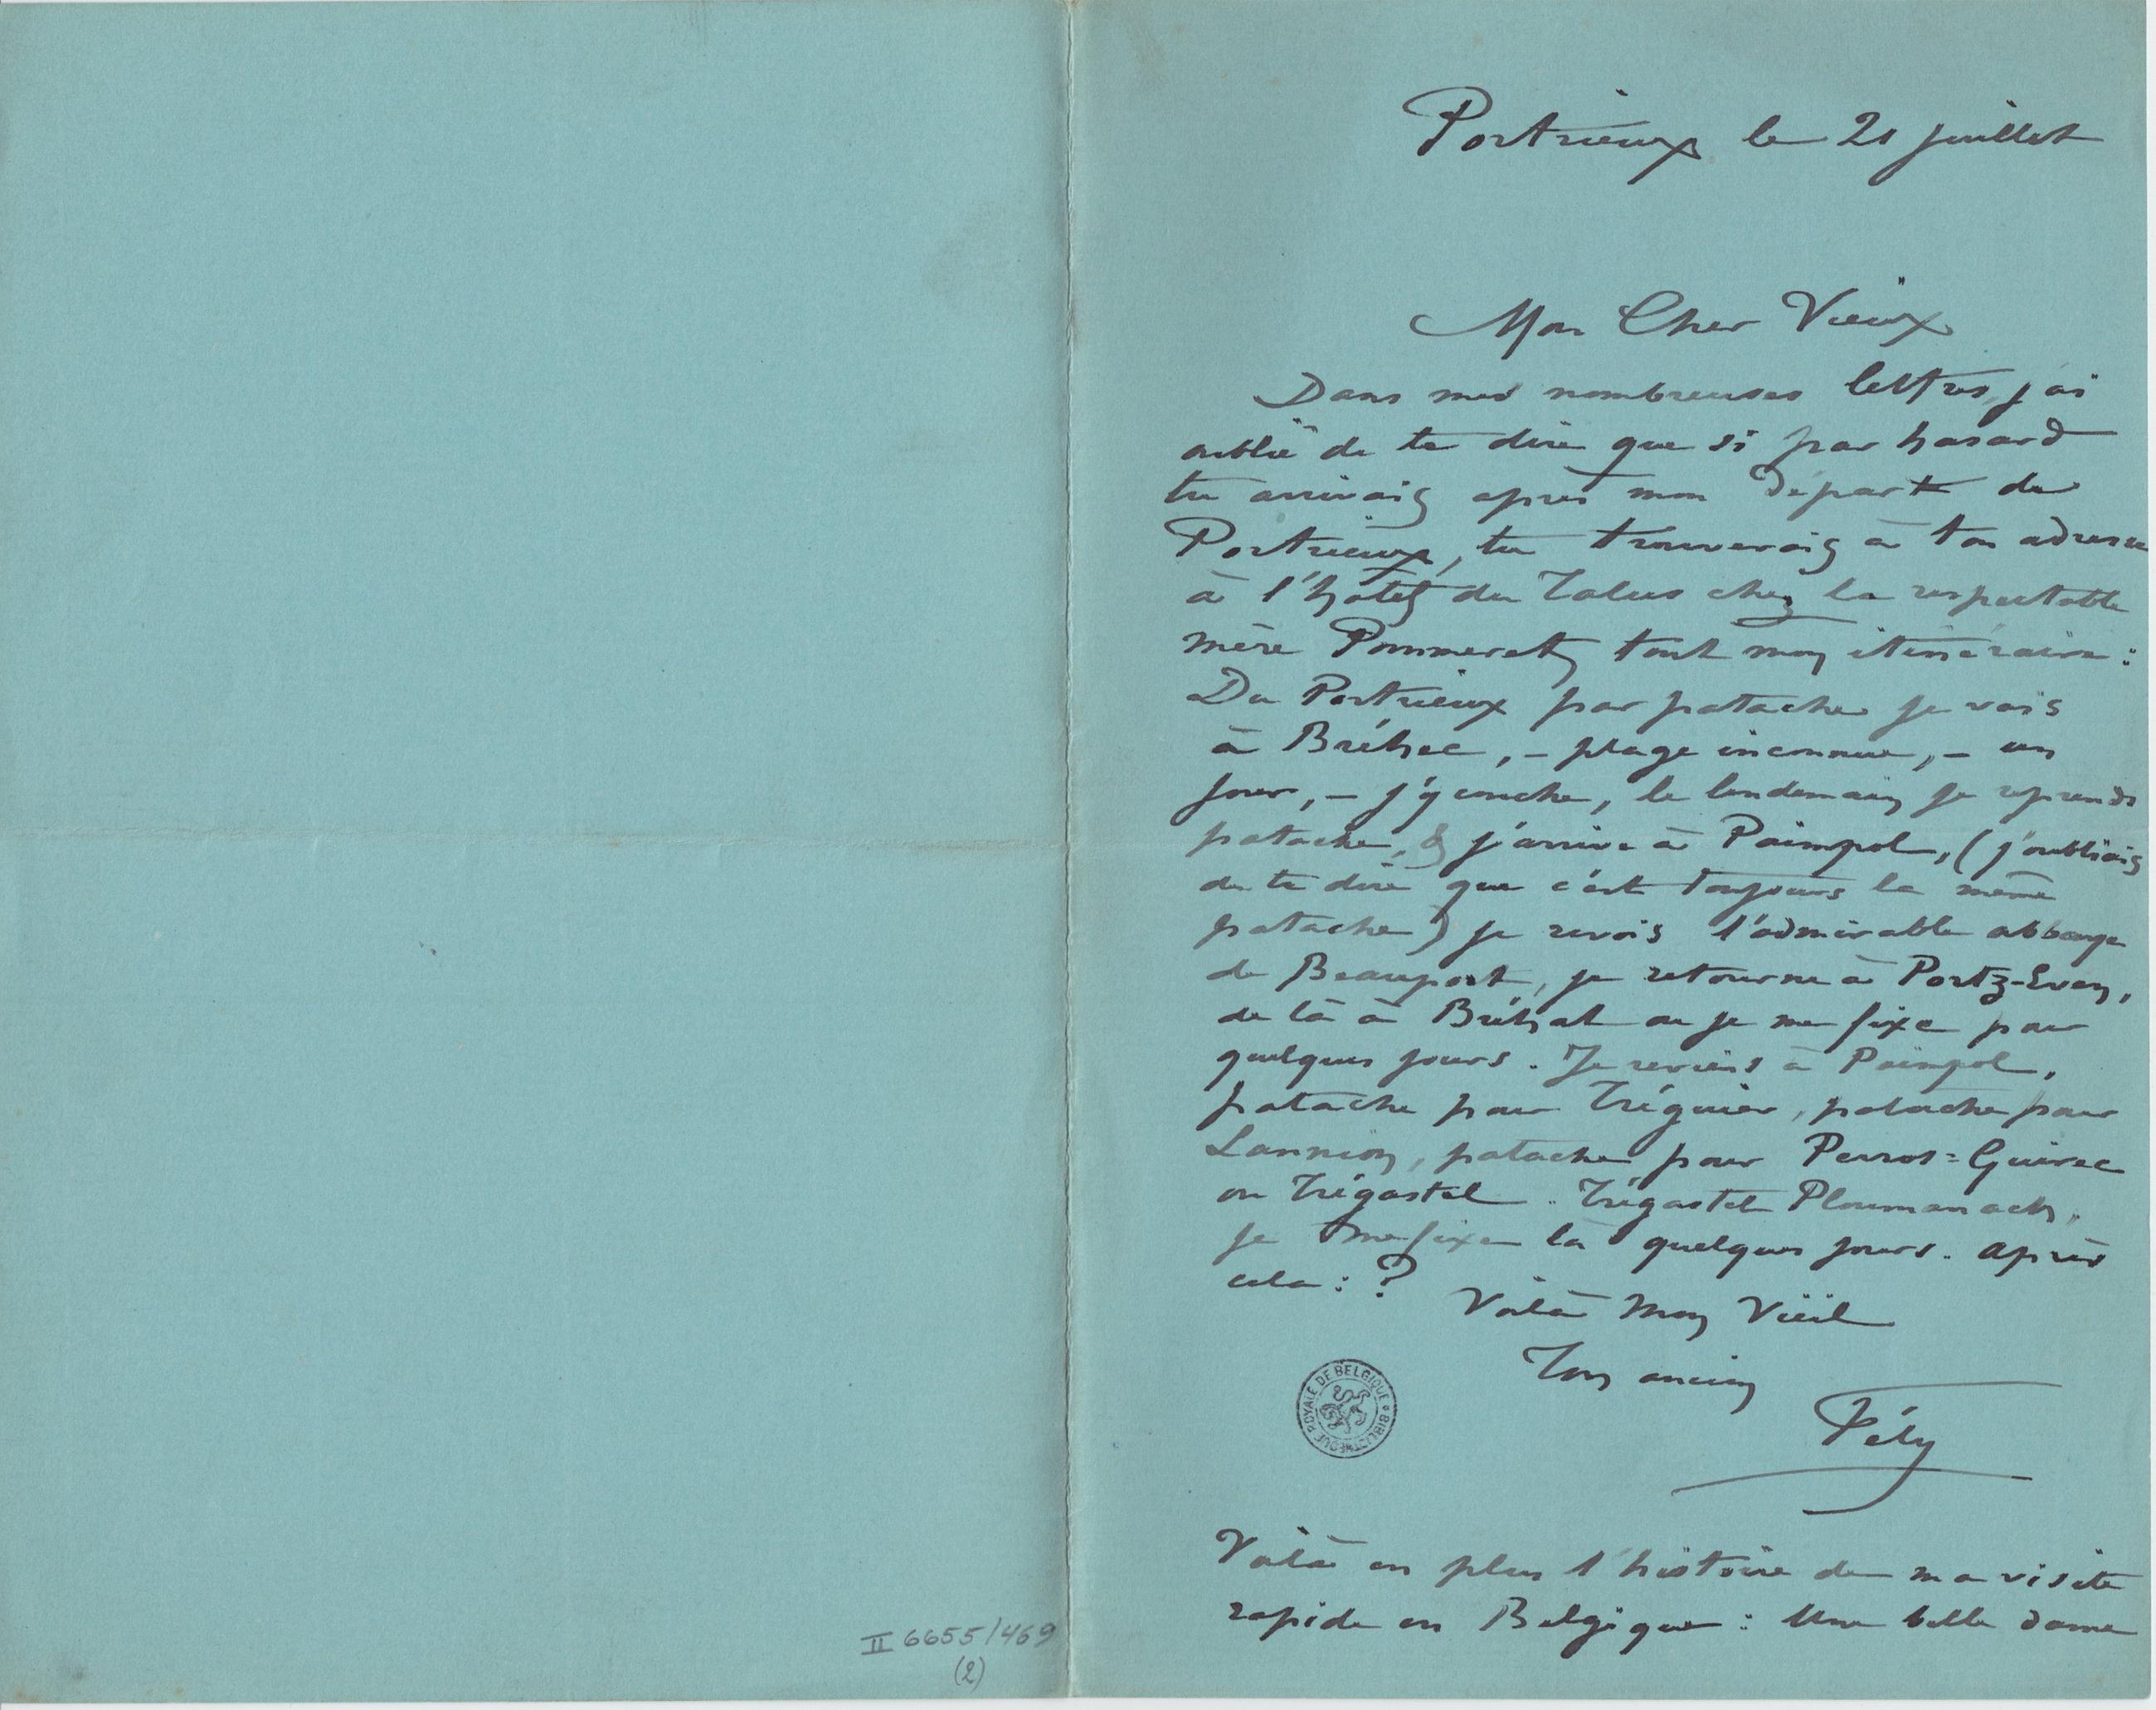 Portrieux le 21 juillet
Mon Cher Vieux
Dans mes nombreuses lettres, j'ai
oublié de te dire que si par hasard
tu arrivais après mon départ de
Portrieux, tu trouverais à ton adresse
à l'hôtel du Talus chez la respectable
mère Pommeret tout mon itinéraire :
Du Portrieux par patache je vais
à Bréhec, – plage inconnue, – un
jour, – j'y couche, le lendemain je reprends
patache, & j'arrive à Paimpol, (j'oubliais
de te dire que c'est toujours la même
patache) je revois l'admirable abbaye
de Beauport, je retourne à Portz-Even,
de là à Bréhat ou je me fixe pour
quelques jours. Je reviens à Paimpol,
patache pour Tréguier, patache pour
Lannion, patache pour Perros=Guirec
ou Trégastel. Trégastel Ploumanach,
je me fixe là quelques jours. après
cela : ?
Voilà Mon Vieil
Ton ancien
Fély
BIBLIOTHÈQUE ROYALE DE BELGIQUE
Voilà en plus l'histoire de ma visite
rapide en Belgique : Une belle dame
II 6655/469
(2)